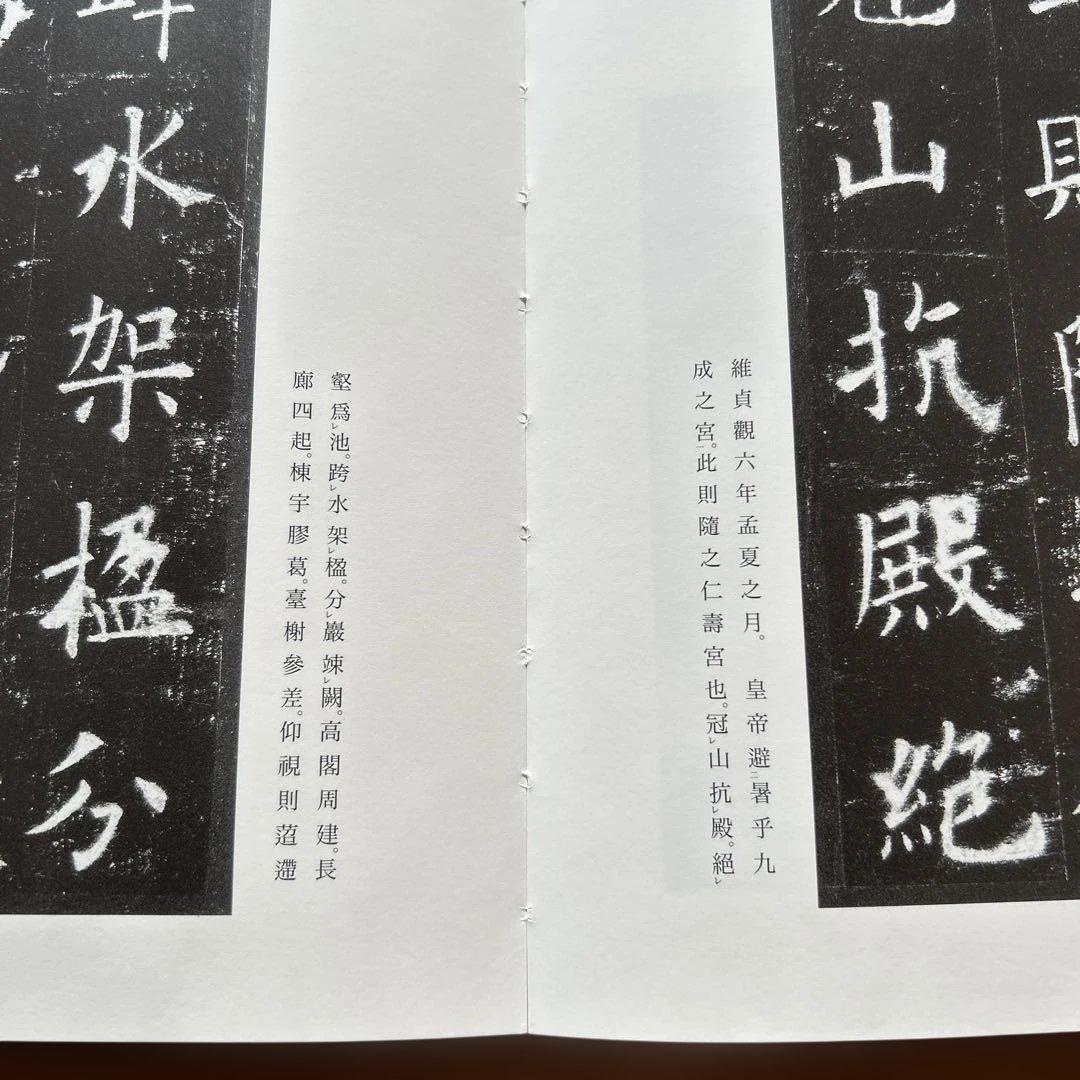 山抗殿絶
維貞觀六年孟夏之月。 皇帝避二暑乎九
成之宮一。此則隨之仁壽宮也。冠レ山抗レ殿。絕レ
壑爲レ池。跨レ水架レ楹。分レ巖竦レ闕。高閣周建。長
廊四起。棟宇膠葛。臺榭參差。仰視則迢遰
水架楹分